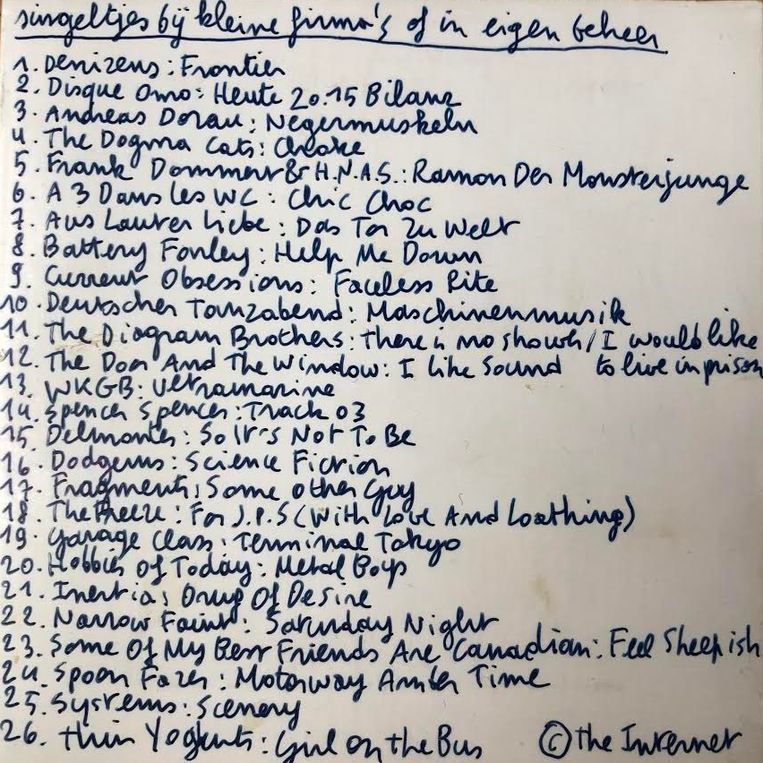 singeltjes bij kleine firma's of in eigen beheer
1. Denizens: Frontier
2. Disque Omo: Heute 20.15 Bilanz
3. Andreas Dorau: Negermuskeln
4. The Dogma Cats: Choke
5. Frank Dommert & H.N.A.S.: Ramon Der Monsterjunge
6. A 3 Dans Les WC: Chic Choc
7. Aus Lauter Liebe: Das Tor Zu Welt
8. Battery Fonley: Help Me Down
9. Current Obsessions: Faceless Rite
10. Deutscher Tanzabend: Maschinenmusik
11. The Diagram Brothers: There is no shower / I would like
12. The Door And The Window: I Like Sound to live in prison
13. WKGB: Ultramarine
14. Spencer Spencer: Track 03
15. Delmontes: So It's Not To Be
16. Dodgems: Science Fiction
17. Fragments: Some other Guy
18. The Freeze: For J.P.S (With Love And Loathing)
19. Garage Class: Terminal Tokyo
20. Hobbies Of Today: Metal Boys
21. Inertia: Drug Of Desire
22. Narrow Faint: Saturday Night
23. Some Of My Best Friends Are Canadian: Feel Sheepish
24. Spoon Fazer: Motorway Amber Time
25. Systems: Scenery
26. Thin Yoghurts: Girl on the Bus © the Internet